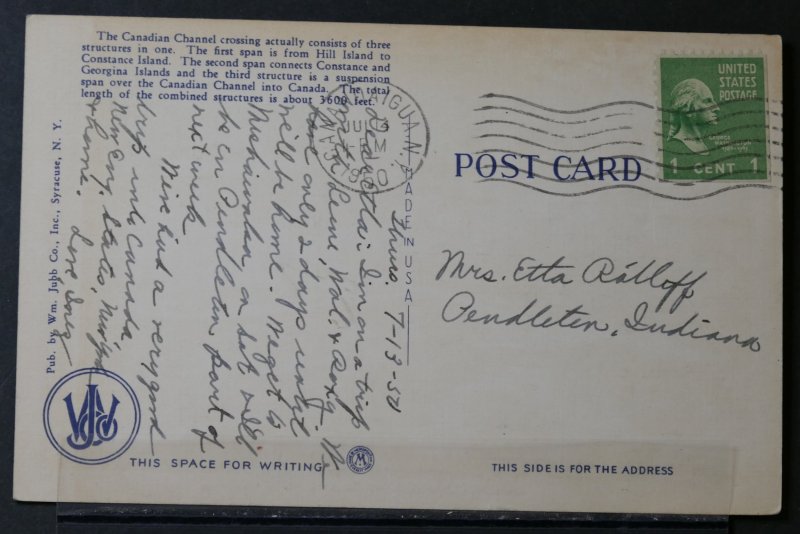 The Canadian Channel crossing actually consists of three
structures in one. The first span is from Hill Island to
Constance Island. The second span connects Constance and
Georgina Islands and the third structure is a suspension
span over the Canadian Channel into Canada. The total
length of the combined structures is about 3600 feet.
UNITED
STATES
POSTAGE
GEORGE
WASHINGTON
1 CENT 1
POST CARD
MADE IN USA
Pub. by Wm. Jubb Co., Inc., Syracuse, N. Y.
Thurs. 7-13-50
Dear Etta: I'm on a trip
with Leine, Wal. &
only 2 days until
we'll be home. We get to
Mishawaka on Sat will
be in Pendleton part of
next week
We've had a very good
trip into Canada
New Eng. States,
& home. Love Inez
Mrs. Etta Ratliff
Pendleton, Indiana
THIS SPACE FOR WRITING
THIS SIDE IS FOR THE ADDRESS